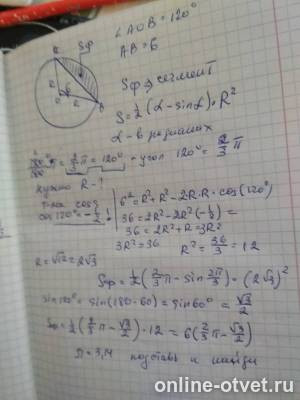 ∠AOB = 120°
AB = 6
Sф
Sф ⇒ сегмент
S = 1/2 (α - sin α) · R²
α - в радианах
= 2/3 π = 120° - угол 120° = 2/3 π
нужно R - ?
Т-ма cos
cos 120° = -1/2 !
6² = R² + R² - 2R·R·cos(120°)
36 = 2R² - 2R²(-1/2) =
36 = 2R² + R² = 3R²
3R² = 36 R² = 36/3 = 12
R = √12 = 2√3
Sф = 1/2 (2/3 π - sin 2π/3) · (2√3)²
sin 120° = sin(180 - 60) = sin 60° = √3/2
Sф = 1/2 (2/3 π - √3/2) · 12 = 6(2/3 π - √3/2)
π = 3,14 подставь и найди
online-otvet.ru